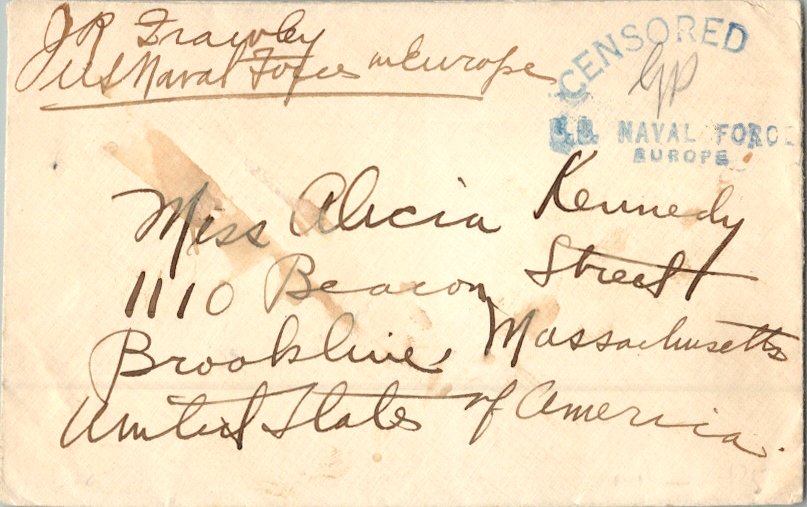 J R Frawley
US Naval Forces in Europe
CENSORED
GP
U.S. NAVAL FORCE
EUROPE
Miss Alicia Kennedy
1110 Beacon Street
Brookline, Massachusetts
United States of America.